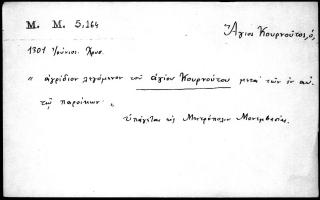 M. M. 5,164
Ἅγιος Κουρνοῦτος, ὁ,
1301 Ἰούνιος. Χρυσ.
" ἀγρίδιον λεγόμενον τοῦ ἁγίου Κουρνούτου μετὰ τῶν ἐν αὐ-
τῷ παροίκων "
ὑπάγεται εἰς Μητρόπολιν Μονεμβασίας.